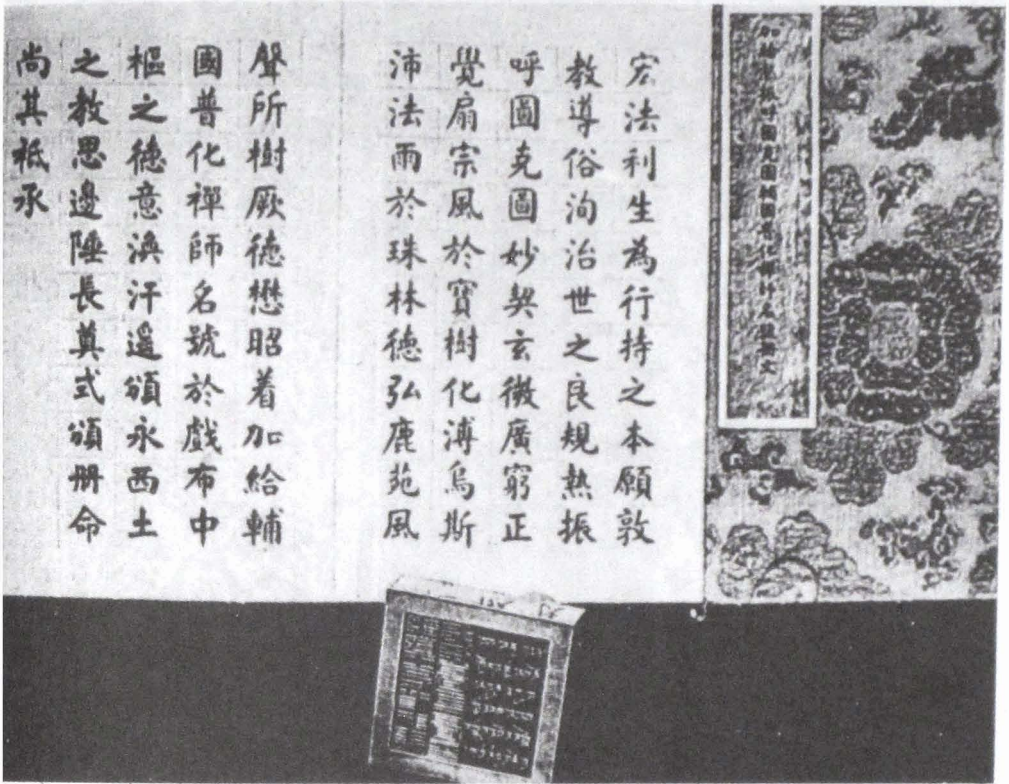 加給熱振呼圖克圖輔國普化禪師名號冊文
宏法利生為行持之本願敦
教導俗洵治世之良規熱振
呼圖克圖妙契玄微廣窮正
覺扇宗風於寶樹化溥烏斯
沛法雨於珠林德弘鹿苑風
聲所樹厥德懋昭着加給輔
國普化禪師名號於戲布中
樞之德意渙汗遙頒永西土
之教思邊陲長奠式頒册命
尚其祗承